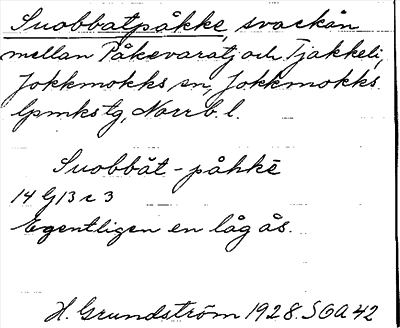 Suobbatpåkke, svackån
mellan Påkevaratj och Tjakkeli,
Jokkmokks sn, Jokkmokks
lpmkstg, Norrb. l.
Suobbăt-påhkē
14 G 13 c 3
Egentligen en låg ås.
H. Grundström 1928. SOA 42